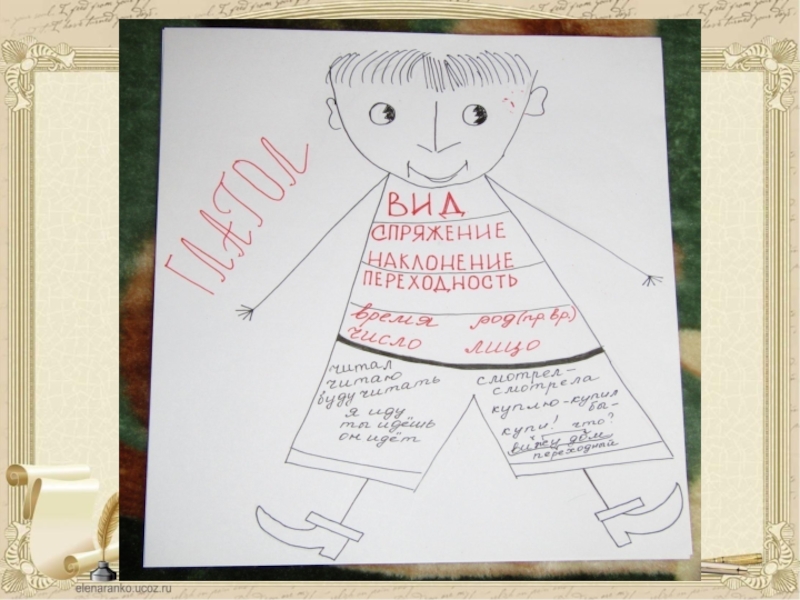 ГЛАГОЛ
ВИД
СПРЯЖЕНИЕ
НАКЛОНЕНИЕ
ПЕРЕХОДНОСТЬ
время род(пр.вр.)
число лицо
читал
читаю
буду читать
я иду
ты идёшь
он идёт
смотрел-
смотрела
куплю-купил
бы-
купи! что?
вижу дом
переходный
elenaranko.ucoz.ru